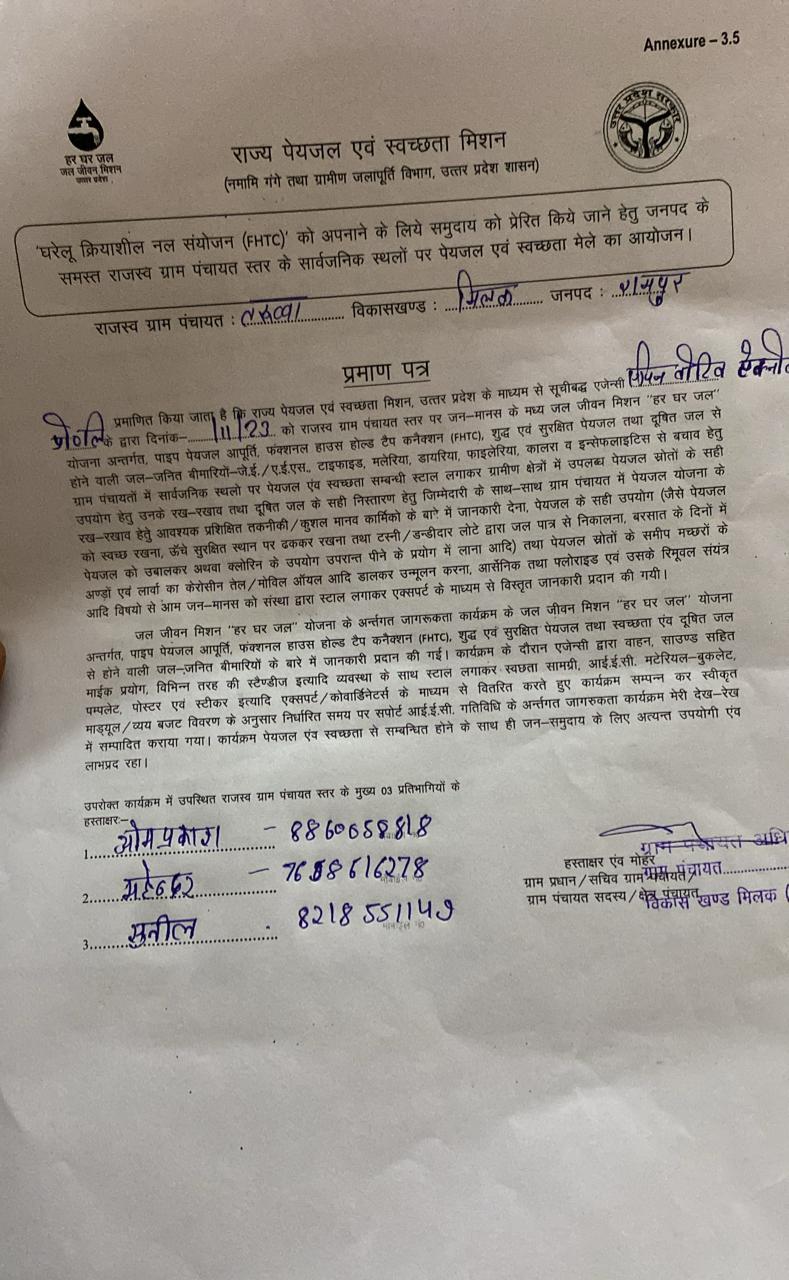 Annexure – 3.5
हर घर जल
जल जीवन मिशन
उत्तर प्रदेश
उत्तर प्रदेश सरकार
राज्य पेयजल एवं स्वच्छता मिशन
(नमामि गंगे तथा ग्रामीण जलापूर्ति विभाग, उत्तर प्रदेश शासन)
'घरेलू क्रियाशील नल संयोजन (FHTC)' को अपनाने के लिये समुदाय को प्रेरित किये जाने हेतु जनपद के
समस्त राजस्व ग्राम पंचायत स्तर के सार्वजनिक स्थलों पर पेयजल एवं स्वच्छता मेले का आयोजन।
राजस्व ग्राम पंचायत : ........ विकासखण्ड : मिलक जनपद : रामपुर
प्रमाण पत्र
प्रमाणित किया जाता है कि राज्य पेयजल एवं स्वच्छता मिशन, उत्तर प्रदेश के माध्यम से सूचीबद्ध एजेन्सी
प्रा०लि० के द्वारा दिनांक– को राजस्व ग्राम पंचायत स्तर पर जन–मानस के मध्य जल जीवन मिशन "हर घर जल"
योजना अन्तर्गत, पाइप पेयजल आपूर्ति, फंक्शनल हाउस होल्ड टैप कनैक्शन (FHTC), शुद्ध एवं सुरक्षित पेयजल तथा दूषित जल से
होने वाली जल–जनित बीमारियों–जे.ई./ए.ई.एस., टाइफाइड, मलेरिया, डायरिया, फाइलेरिया, कालरा व इन्सेफलाइटिस से बचाव हेतु
ग्राम पंचायतों में सार्वजनिक स्थलो पर पेयजल एंव स्वच्छता सम्बन्धी स्टाल लगाकर ग्रामीण क्षेत्रों में उपलब्ध पेयजल स्रोतों के सही
उपयोग हेतु उनके रख–रखाव तथा दूषित जल के सही निस्तारण हेतु जिम्मेदारी के साथ–साथ ग्राम पंचायत में पेयजल योजना के
रख–रखाव हेतु आवश्यक प्रशिक्षित तकनीकी/कुशल मानव कार्मिको के बारे में जानकारी देना, पेयजल के सही उपयोग (जैसे पेयजल
को स्वच्छ रखना, ऊँचे सुरक्षित स्थान पर ढककर रखना तथा टस्नी/डन्डीदार लोटे द्वारा जल पात्र से निकालना, बरसात के दिनों में
पेयजल को उबालकर अथवा क्लोरिन के उपयोग उपरान्त पीने के प्रयोग में लाना आदि) तथा पेयजल स्रोतों के समीप मच्छरों के
अण्डों एवं लार्वा का केरोसीन तेल/मोविल ऑयल आदि डालकर उन्मूलन करना, आर्सेनिक तथा फ्लोराइड एवं उसके रिमूवल संयंत्र
आदि विषयो से आम जन–मानस को संस्था द्वारा स्टाल लगाकर एक्सपर्ट के माध्यम से विस्तृत जानकारी प्रदान की गयी।
जल जीवन मिशन "हर घर जल" योजना के अर्न्तगत जागरूकता कार्यक्रम के जल जीवन मिशन "हर घर जल" योजना
अन्तर्गत, पाइप पेयजल आपूर्ति, फंक्शनल हाउस होल्ड टैप कनैक्शन (FHTC), शुद्ध एवं सुरक्षित पेयजल तथा स्वच्छता एंव दूषित जल
से होने वाली जल–जनित बीमारीयों के बारे में जानकारी प्रदान की गई। कार्यक्रम के दौरान एजेन्सी द्वारा वाहन, साउण्ड सहित
माईक प्रयोग, विभिन्न तरह की स्टैण्डीज इत्यादि व्यवस्था के साथ स्टाल लगाकर स्वछता सामग्री, आई.ई.सी. मटेरियल–बुकलेट,
पम्पलेट, पोस्टर एवं स्टीकर इत्यादि एक्सपर्ट/कोवार्डिनेटर्स के माध्यम से वितरित करते हुए कार्यक्रम सम्पन्न कर स्वीकृत
माड्यूल/व्यय बजट विवरण के अनुसार निर्धारित समय पर सपोर्ट आई.ई.सी. गतिविधि के अर्न्तगत जागरुकता कार्यक्रम मेरी देख–रेख
में सम्पादित कराया गया। कार्यक्रम पेयजल एंव स्वच्छता से सम्बन्धित होने के साथ ही जन–समुदाय के लिए अत्यन्त उपयोगी एंव
लाभप्रद रहा।
उपरोक्त कार्यक्रम में उपस्थित राजस्व ग्राम पंचायत स्तर के मुख्य 03 प्रतिभागियों के
हस्ताक्षर:–
1. ओमप्रकाश – 8860658818
2. महेन्दर –
3. सुनील 8218551149
हस्ताक्षर एंव मोहर
ग्राम प्रधान/सचिव ग्राम पंचायत/
ग्राम पंचायत सदस्य/क्षेत्र पंचायत
ग्राम पंचायत अधि
ग्राम पंचायत
विकास खण्ड मिलक (